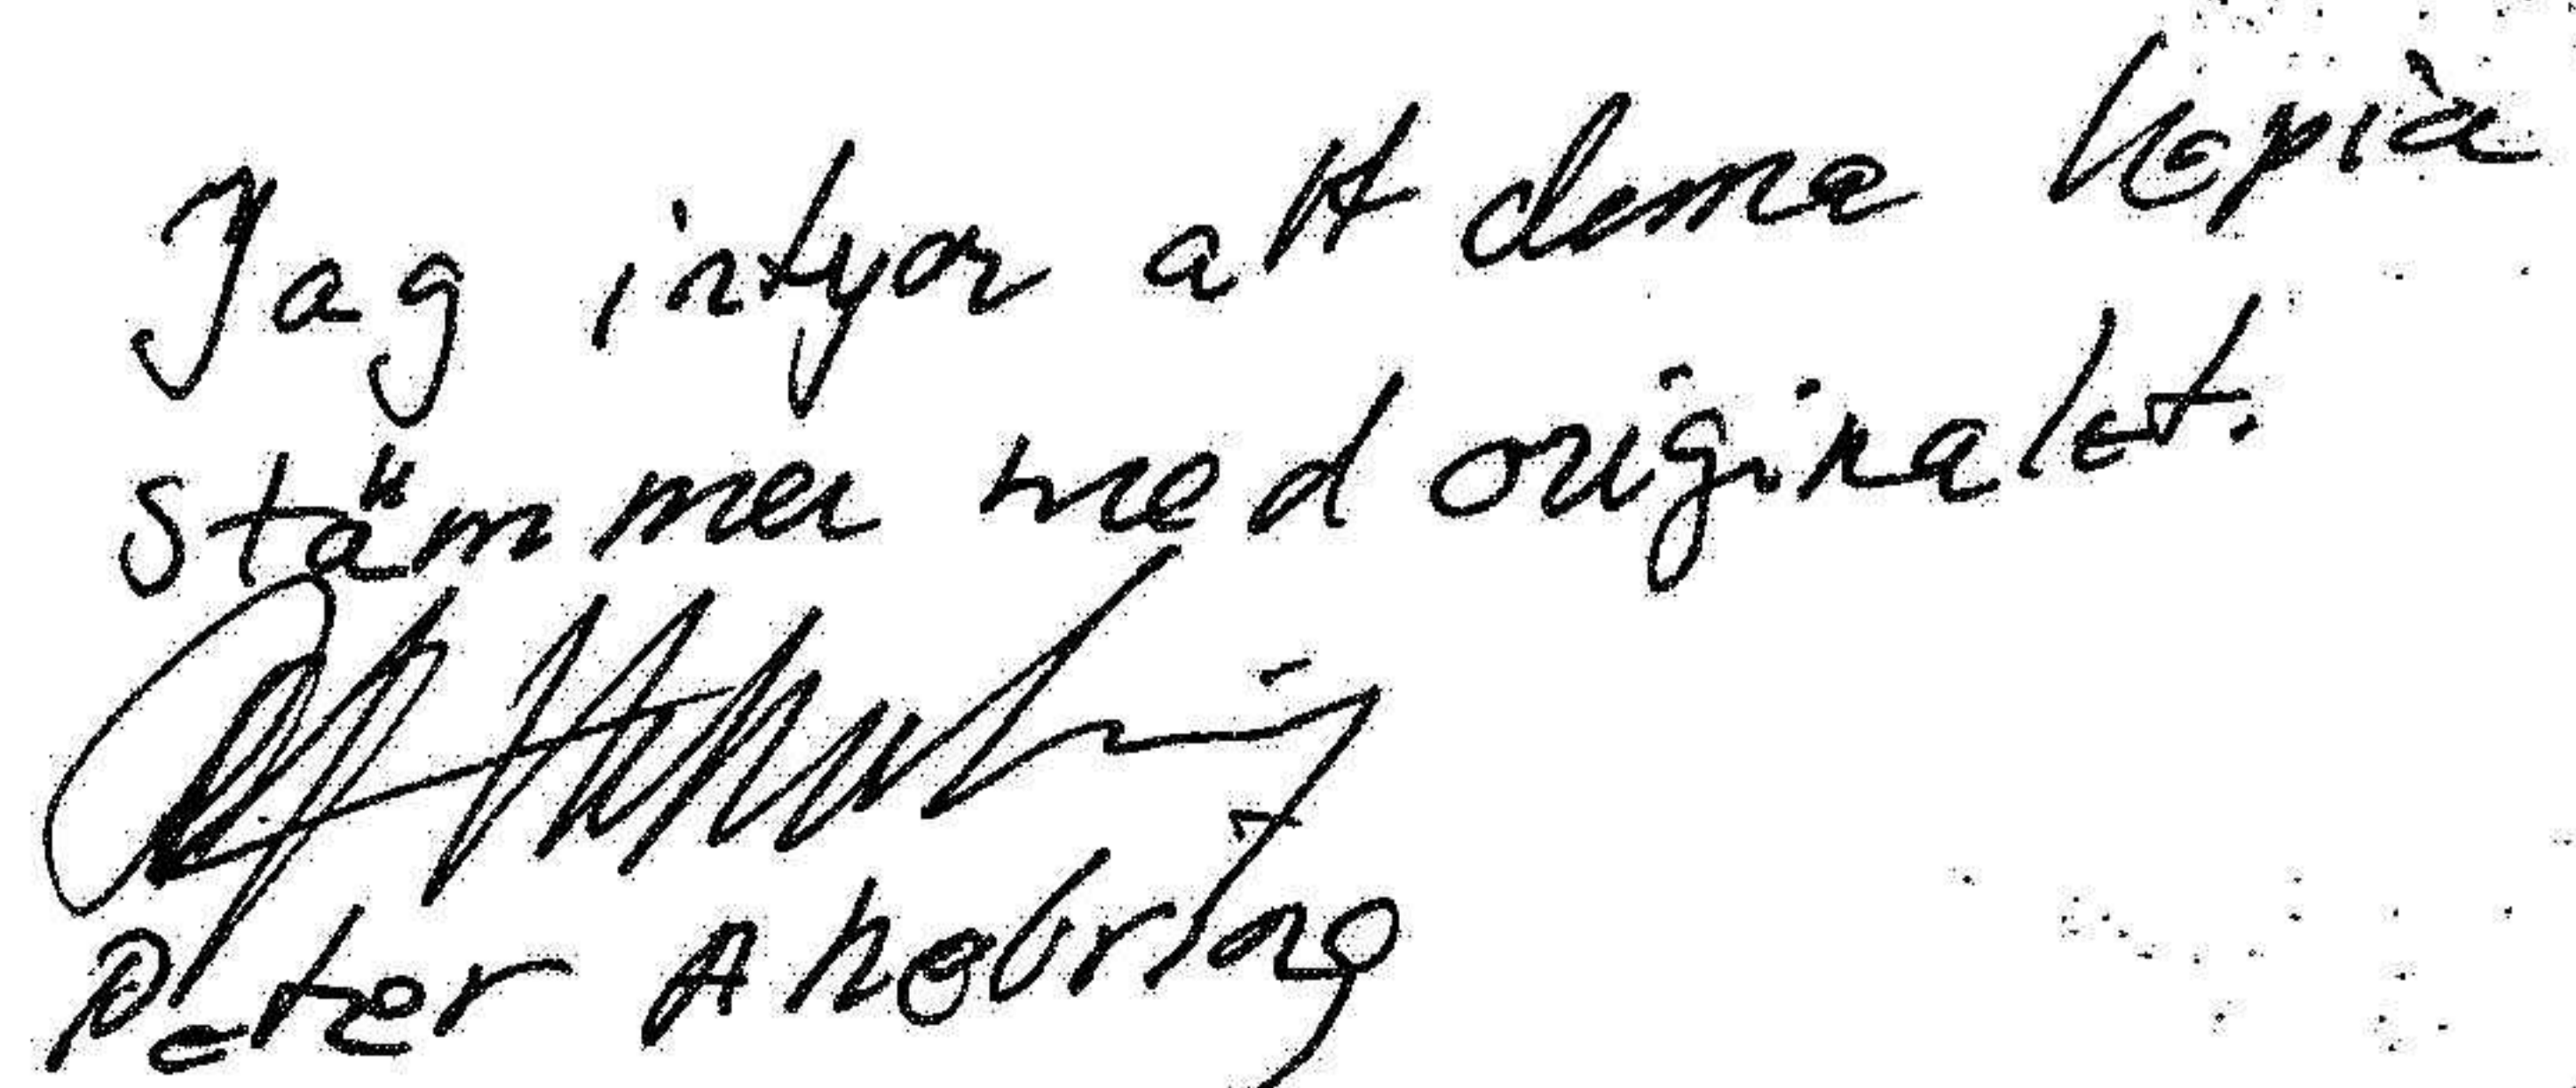 Jag intygar att denna kopia
stämmer med originalet.
Peter